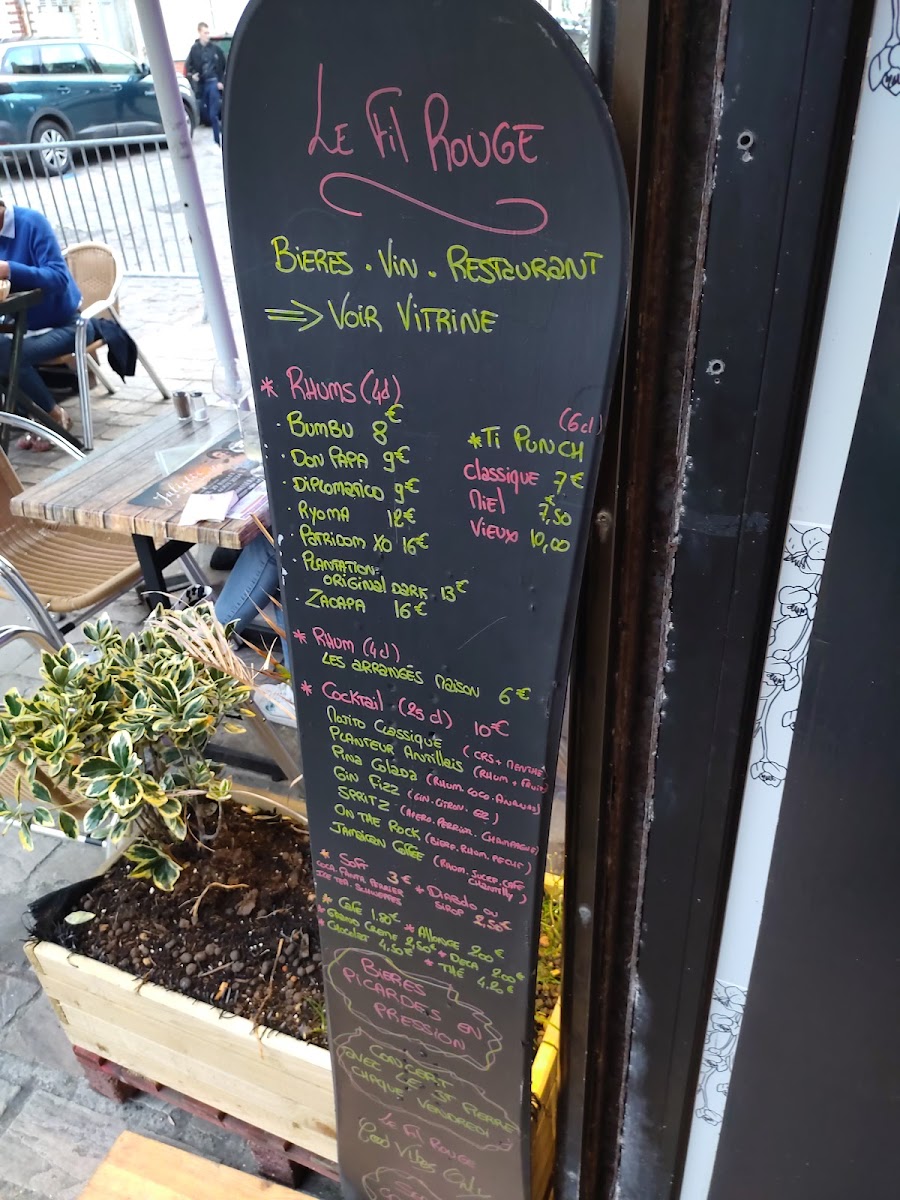 LE Fil ROUGE
BIERES . VIN . RESTAURANT
=> VOIR VITRINE
* RHUMS (4cl)
. BUMBU 8€
. DON PAPA 9€
. DIPLOMATICO 9€
. RYOMA 12€
. PATRIDOM XO 16€
. PLANTATION.
ORIGINAL DARK 13€
. ZACAPA 16€
(6cl)
* TI PUNCH
CLASSIQUE 7€
MIEL 7,50€
VIEUX 10,00
* RHUM (4cl)
LES ARRANGÉS MAISON 6€
* COCKTAIL (25cl) 10€
MOJITO CLASSIQUE (CRS + MENTHE
PLANTEUR ANTILLAIS (RHUM + FRUIT
PINA COLADA (RHUM. COCO. ANANAS)
GIN FIZZ (GIN. CITRON. GZ)
SPRITZ (APERO. PERRIER. CHAMPAGNE)
ON THE ROCK (BIERE. RHUM. PECHE)
JAMAICAN COFFEE (RHUM. SUCRE. CAFE
CHANTILLY)
* SOFT 3€
COCA. FANTA. PERRIER
ICE TEA. SCHWEPPES
* DIABOLO OU
SIROP 2,50€
* CAFE 1.80€ * ALLONGE 2,00€
* GRAND CREME 2,60€ * DECA 2,00€
* CHOCOLAT 4,50€ * THÉ 4.20€
BIERES
PICARDES EN
PRESSION
CONCERT
AVEC LE ST PIERRE
CHAQUE VENDREDI
LE FIL ROUGE
GOOD VIBES ONLY